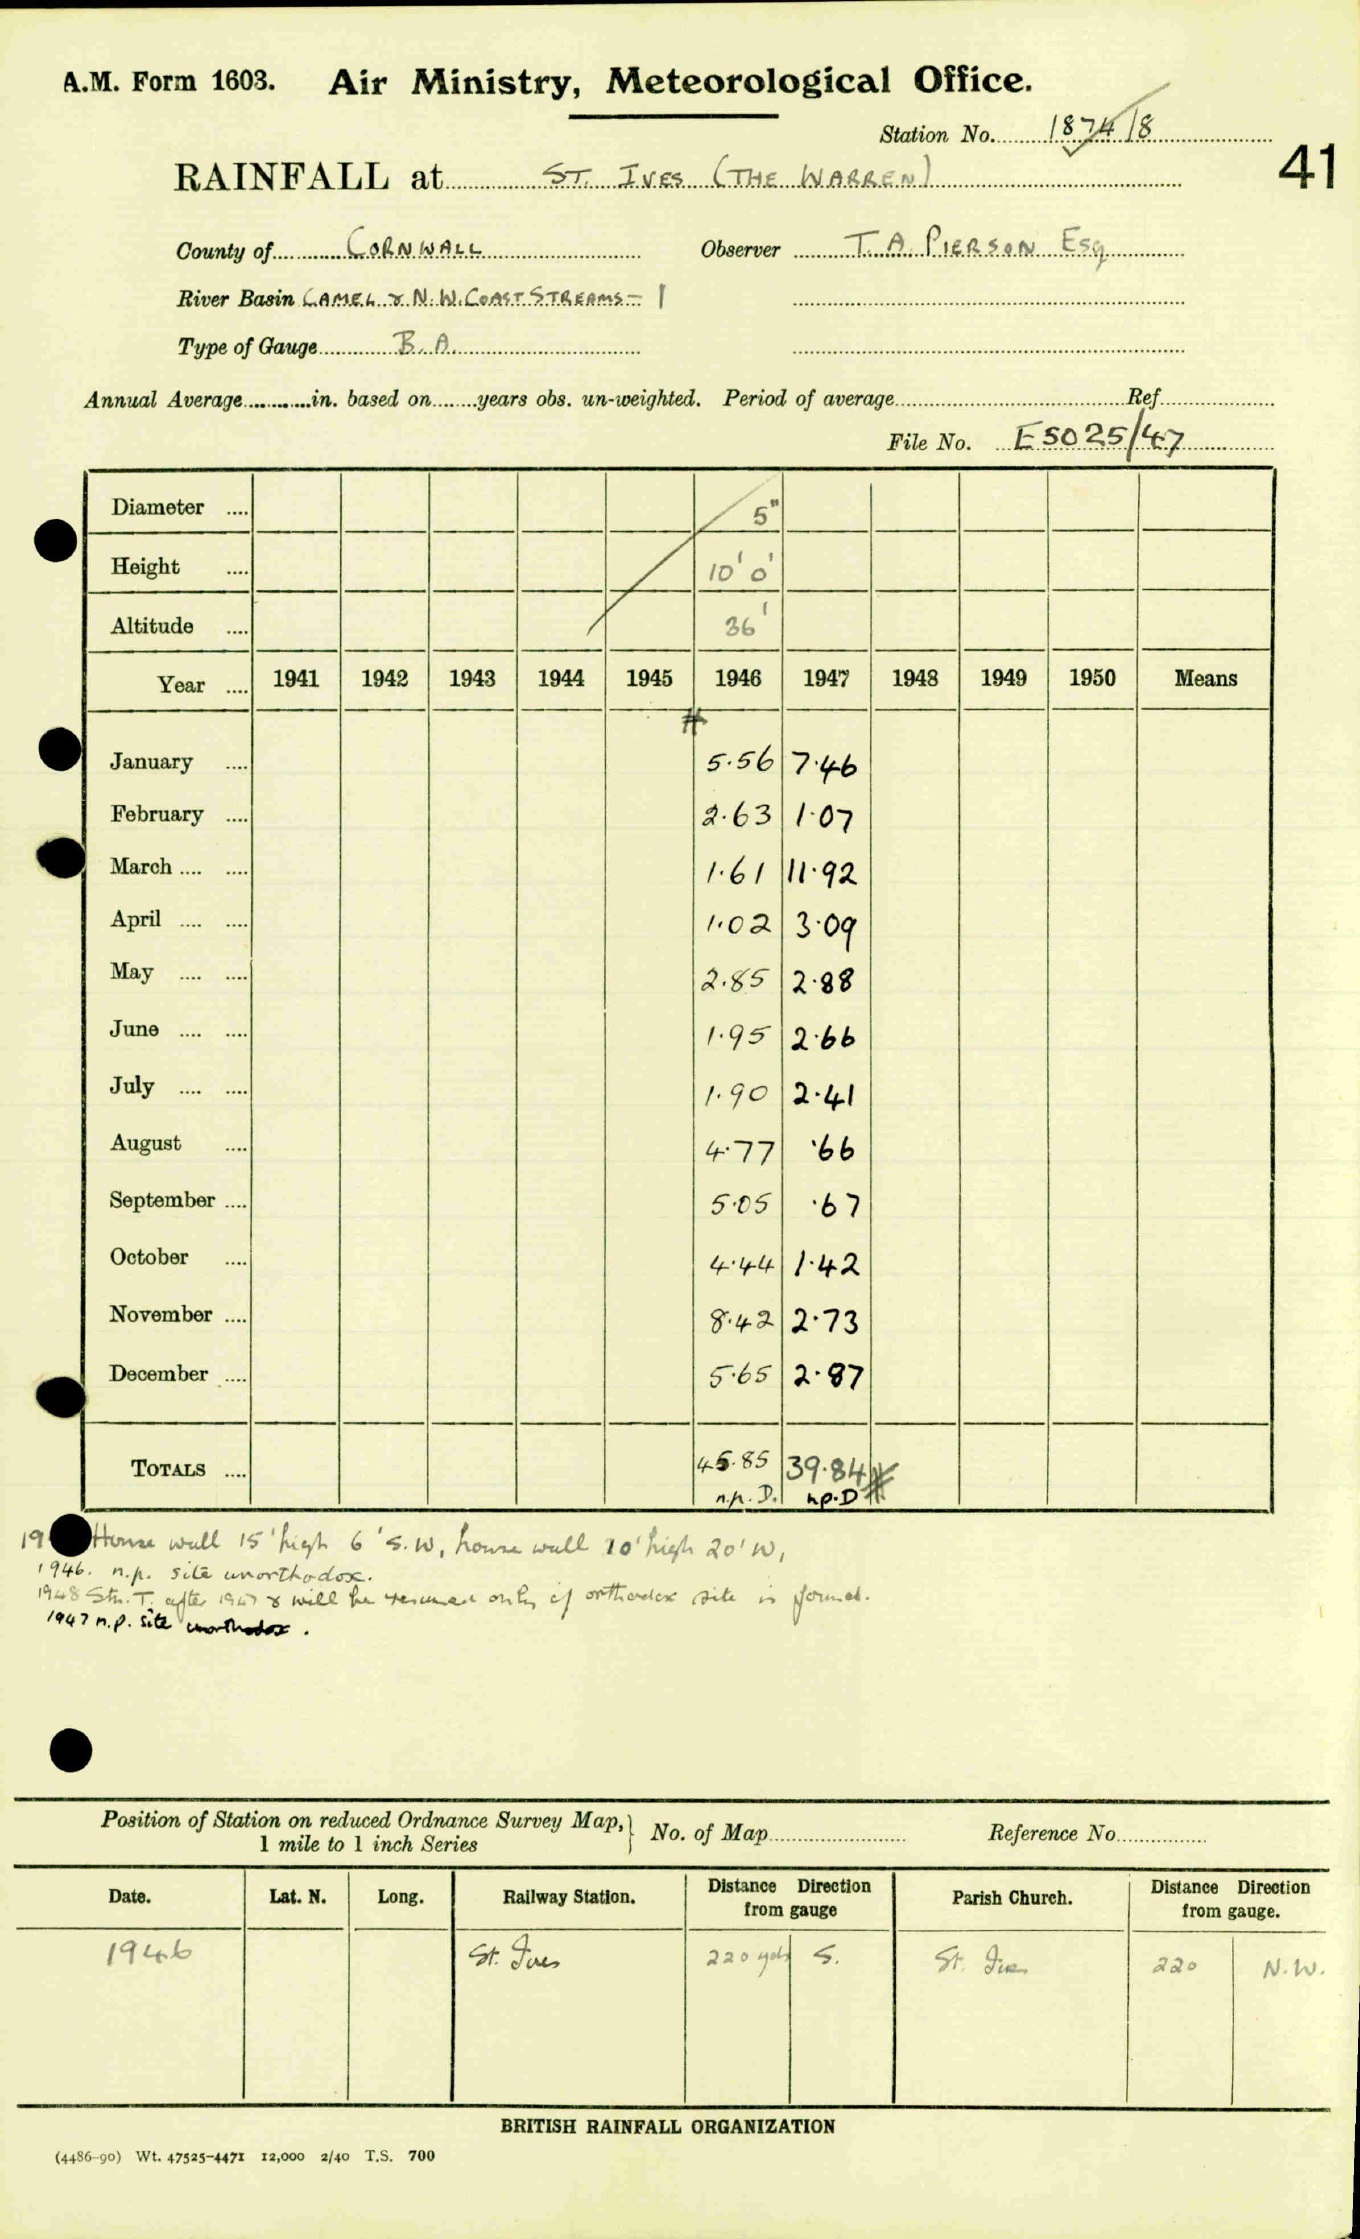 A.M. Form 1603. Air Ministry, Meteorological Office.
Station No. 1874/8
41
RAINFALL at ST. IVES (THE WARREN)
County of CORNWALL Observer T. A. PIERSON Esq
River Basin CAMEL & N.W. COAST STREAMS - 1
Type of Gauge B. A.
Annual Average............in. based on........years obs. un-weighted. Period of average.................Ref.........
File No. ESO25/47
Diameter .... 5"
Height .... 10' 0'
Altitude .... 36'
Year .... 1941 1942 1943 1944 1945 1946 1947 1948 1949 1950 Means
January .... 5.56 7.46
February .... 2.63 1.07
March .... .... 1.61 11.92
April .... .... 1.02 3.09
May .... .... 2.85 2.88
June .... .... 1.95 2.66
July .... .... 1.90 2.41
August .... 4.77 .66
September .... 5.05 .67
October .... 4.44 1.42
November .... 8.42 2.73
December .... 5.65 2.87
TOTALS .... 45.85 39.84
n.p. D. n.p. D
19 House wall 15' high 6' S.W, house wall 20' W,
1946. n.p. site unorthodox.
1948 Stn. T. after 1947 & will be resumed only if orthodox site is found.
1947 n.p. site unorthodox.
Position of Station on reduced Ordnance Survey Map,} No. of Map........ Reference No........
1 mile to 1 inch Series
Date. Lat. N. Long. Railway Station. Distance Direction from gauge Parish Church. Distance Direction from gauge.
1946 St. Ives 220 yds S. St. Ives 220 N.W.
BRITISH RAINFALL ORGANIZATION
(4486-90) Wt. 47525-4471 12,000 2/40 T.S. 700